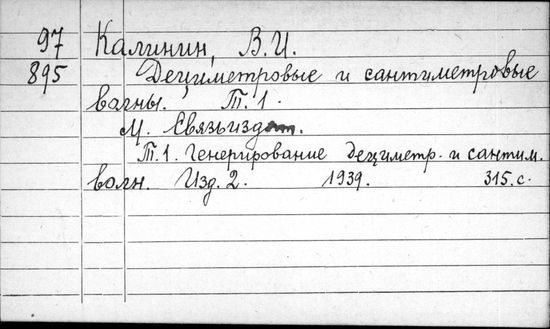 97 Калинин, В.И.
895 Дециметровые и сантиметровые
волны. Т. 1.
М. Связьиздат.
Т. 1. Генерирование дециметр. и сантим.
волн. Изд. 2. 1939. 315. с.